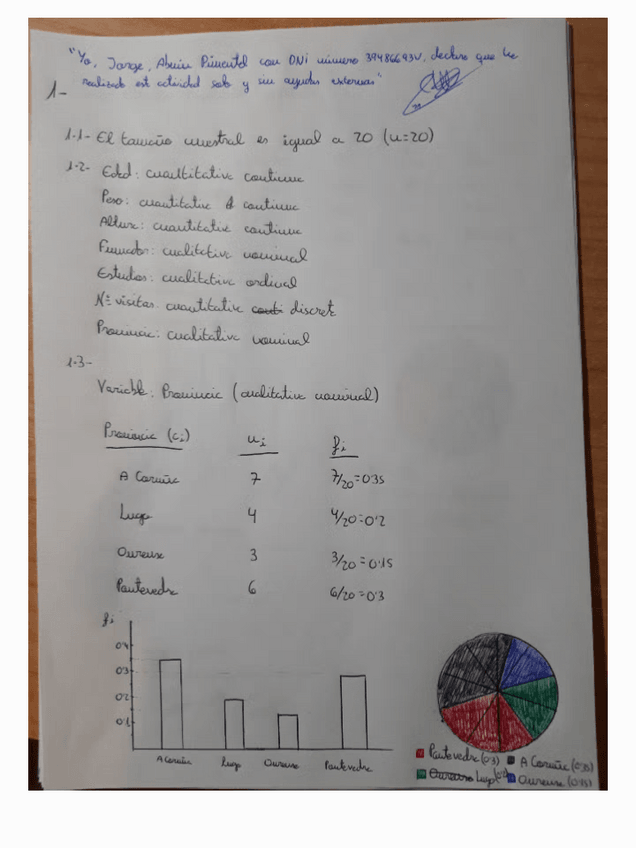 "Yo, Jorge, Abuin Pimentel con DNI número 39486693V, declaro que he
realizado est actividad solo y sin ayudas externas"
1-
1.1- El tamaño muestral es igual a 20 (n=20)
1.2- Edad: cuantitativa continua
Peso: cuantitativa continua
Altura: cuantitativa continua
Fumador: cualitativa nominal
Estudios: cualitativa ordinal
Nº visitas: cuantitativa conti discret
Provincia: cualitativa nominal
1.3-
Variable: Provincia (cualitativa nominal)
Provincia (ci) ni fi
A Coruña 7 7/20=0'35
Lugo 4 4/20=0'2
Ourense 3 3/20=0'15
Pontevedra 6 6/20=0'3
fi
0'4
0'3
0'2
0'1
A Coruña Lugo Ourense Pontevedra
Pontevedra (0'3) A Coruña (0'35)
Ourense Lugo (0'2) Ourense (0'15)